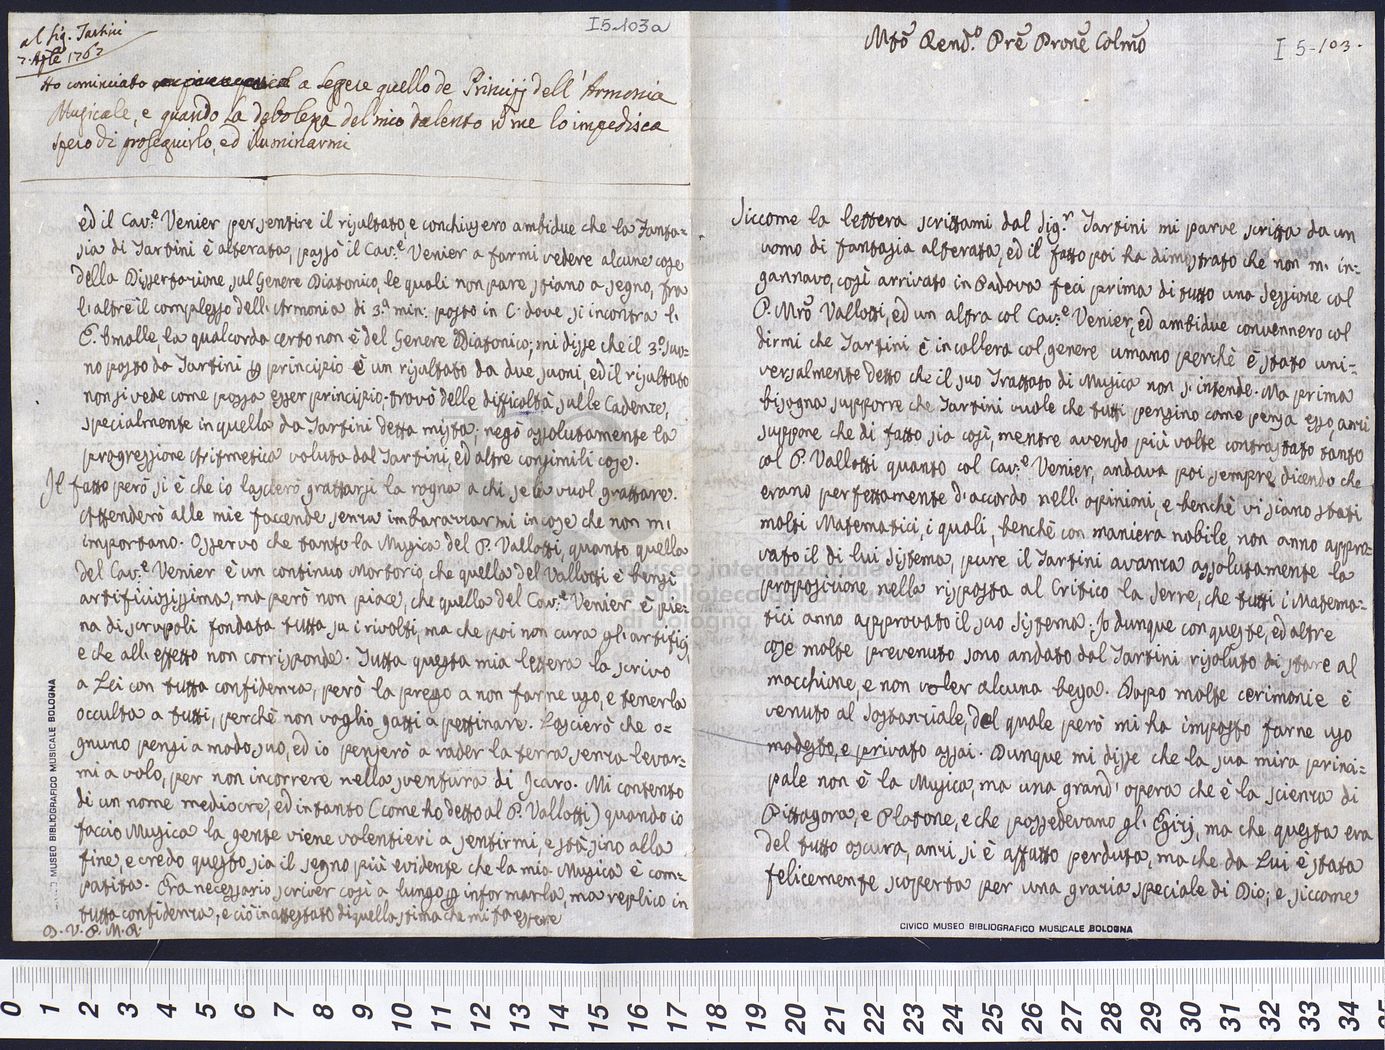 I 5-103a
al Sig. Tartini
7. Aple 1762
Ho cominciato a leggere quello de Principj dell'Armonia
Musicale, e quando la debolezza del mio talento nō me lo impedisca
spero di proseguirlo, ed illuminarmi
ed il Cav.e Venier per sentire il risultato, e conchiusero ambidue che la Fanta=
sia di Tartini è alterata, passò il Cav.e Venier a farmi vedere alcune cose
della Dissertazione sul Genere Diatonico, le quali non pare stiano a segno, fra
l'altre il complesso dell'Armonia di 3.a min: posto in C: dove si incontra l'
E. bmolle, la qual corda certo non è del Genere Diatonico; mi disse che il 3.o suo=
no posto da Tartini p principio è un risultato da due suoni, ed il risultato
non si vede come possa esser principio. trovò delle difficoltà sulle Cadenze,
specialmente in quella da Tartini detta mista; negò assolutamente la
progressione Aritmetica voluta dal Tartini, ed altre consimili cose.
Il fatto però si è che io lascierò grattarsi la rogna a chi se la vuol grattare.
Attenderò alle mie faccende senza imbarazzarmi in cose che non mi
importano. Osservo che tanto la Musica del P. Vallotti, quanto quella
del Cav.e Venier è un continuo Mortorio, che quella del Vallotti è bensì
artifiziosissima, ma però non piace, che quella del Cav.e Venier, è pie=
na di scrupoli fondata tutta su i rivolti, ma che poi non cura gli artifizj,
e che all'effetto non corrisponde. Tutta questa mia lettera la scrivo
a Lei con tutta confidenza, però la prego a non farne uso, e tenerla
occulta a tutti, perchè non voglio gatti a pettinare. Lascierò che o=
gnuno pensi a modo suo, ed io penserò a rader la terra, senza levar=
mi a volo, per non incorrere nella sventura di Icaro. Mi contento
di un nome mediocre, ed intanto (come ho detto al P. Vallotti) quando io
faccio Musica la gente viene volentieri a sentirmi, e stà sino alla
fine, e credo questo sia il segno più evidente che la mia Musica è com=
patita. Era necessario scriver così a lungo p informarla, ma replico in
tutta confidenza, e ciò in attestato di quella stima che mi fa essere
D. V. P. M. R.
Mtō Rend.o Prē Pronē Colmō
I 5-103.
Siccome la lettera scrittami dal Sig.r Tartini mi parve scritta da un
uomo di fantasia alterata, ed il fatto poi ha dimostrato che non m'in=
gannavo, così arrivato in Padova feci prima di tutto una sessione col
P. Mrō Vallotti, ed un altra col Cav.e Venier, ed ambidue convennero col
dirmi che Tartini è in collera col genere umano perchè è stato uni=
versalmente detto che il suo Trattato di Musica non s'intende. Ma prima
bisogna supporre che Tartini vuole che tutti pensino come pensa esso, anzi
suppone che di fatto sia così, mentre avendo più volte contrastato tanto
col P. Vallotti quanto col Cav.e Venier, andava poi sempre dicendo che
erano perfettamente d'accordo nell'opinioni, e benchè vi siano stati
molti Matematici, i quali, benchè con maniera nobile non anno appro=
vato il di lui Sistema, pure il Tartini avanza assolutamente la
proposizione nella risposta al Critico la Serre, che tutti i Matema=
tici anno approvato il suo Sistema. Io dunque con queste, ed altre
cose molte prevenuto sono andato dal Tartini risoluto di stare al
macchione, e non voler alcuna bega. Dopo molte cerimonie è
venuto al sostanziale, del quale però mi ha imposto farne uso
modesto, e privato assai. Dunque mi disse che la sua mira princi=
pale non è la Musica, ma una grand'opera che è la scienza di
Pittagora, e Platone, e che possedevano gl'Egizj, ma che questa era
del tutto oscura, anzi si è affatto perduta, ma che da Lui è stata
felicemente scoperta per una grazia speciale di Dio; e siccome
museo internazionale
e biblioteca della musica
di bologna
MUSEO BIBLIOGRAFICO MUSICALE BOLOGNA
CIVICO MUSEO BIBLIOGRAFICO MUSICALE BOLOGNA
0 1 2 3 4 5 6 7 8 9 10 11 12 13 14 15 16 17 18 19 20 21 22 23 24 25 26 27 28 29 30 31 32 33 34 35